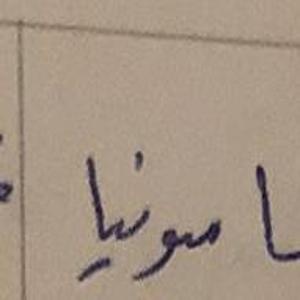 ا مونيا